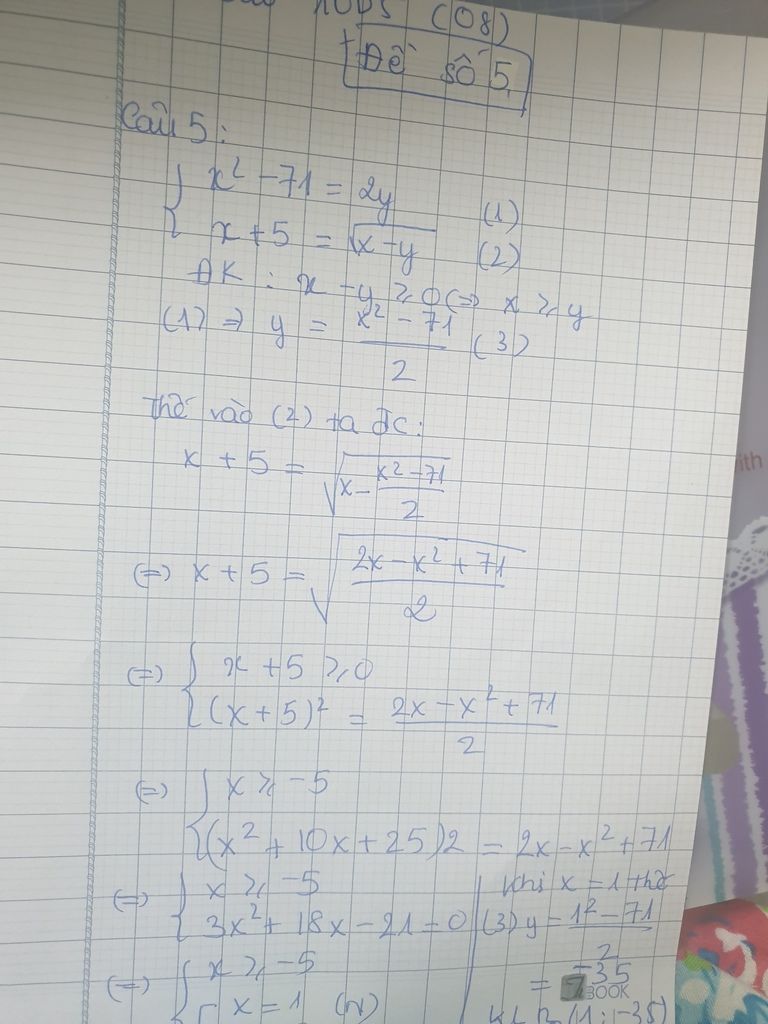 (08)
Đề số 5
Câu 5:
{ x² - 71 = 2y (1)
x + 5 = √(x - y) (2)
ĐK : x - y ≥ 0 (=) x ≥ y
(1) => y = (x² - 71)/2 (3)
Thế vào (2) ta đc:
x + 5 = √(x - (x² - 71)/2)
(=) x + 5 = √((2x - x² + 71)/2)
(=) { x + 5 ≥ 0
(x + 5)² = (2x - x² + 71)/2
(=) { x ≥ -5
(x² + 10x + 25)2 = 2x - x² + 71
(=) { x ≥ -5
3x² + 18x - 21 = 0
(=) { x ≥ -5
[ x = 1 (N)
Khi x = 1 thế
(3) y = (1² - 71)/2
= -35
(1; -35)
BOOK
ith